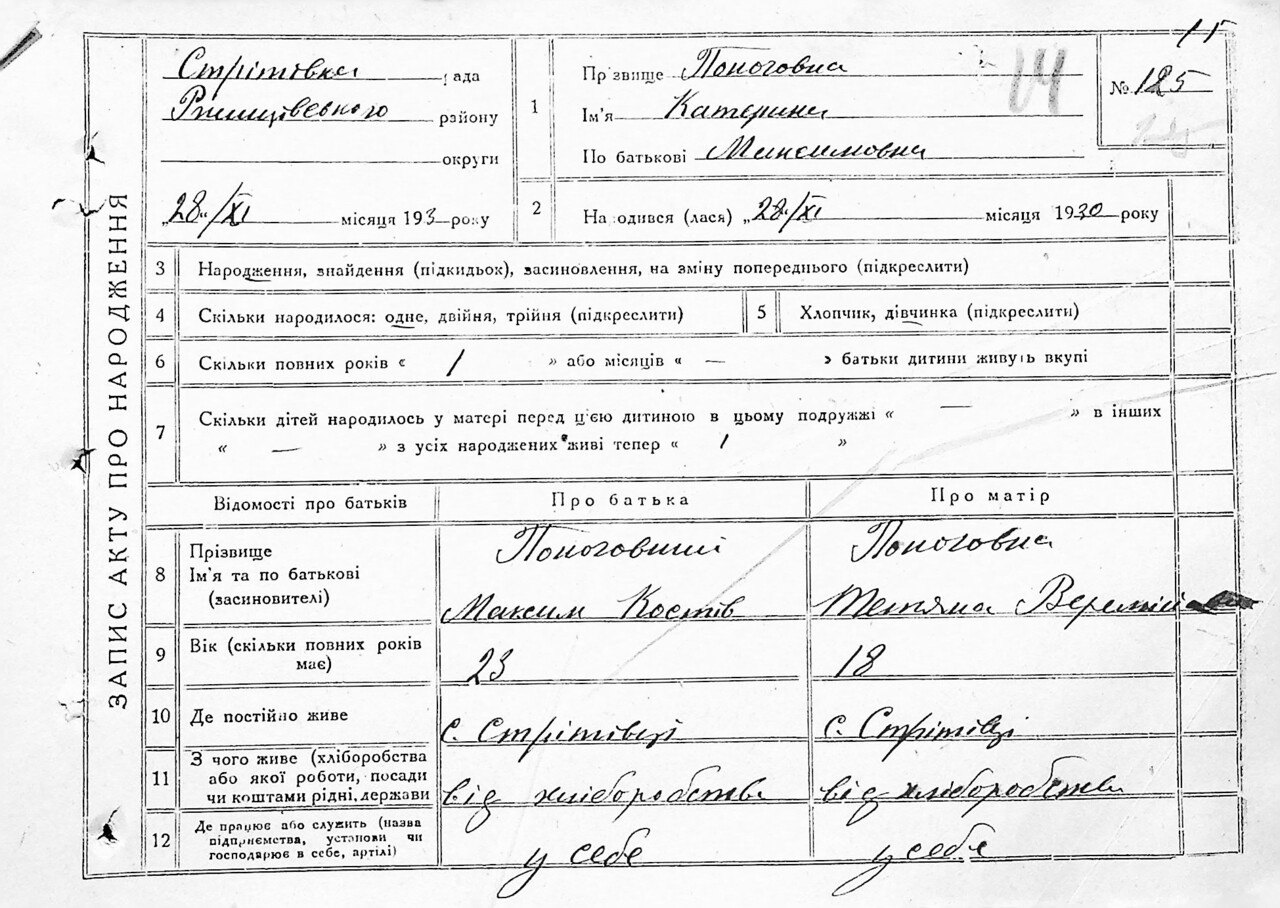 15
ЗАПИС АКТУ ПРО НАРОДЖЕННЯ
Стрітовка рада
Ржищівського району
округи
„28“/XI місяця 193 року
1
Прізвище Поноговна
Ім'я Катерина
По батькові Максимовна
14
№ 125
2 Народився (лася) „28“/XI місяця 1930 року
3 Народження, знайдення (підкидьок), засиновлення, на зміну попереднього (підкреслити)
4 Скільки народилося: одне, двійня, трійня (підкреслити) 5 Хлопчик, дівчинка (підкреслити)
6 Скільки повних років « 1 » або місяців « — » батьки дитини живуть вкупі
7 Скільки дітей народилось у матері перед цією дитиною в цьому подружжі « — » в інших
« — » з усіх народжених живі тепер « 1 »
Відомості про батьків Про батька Про матір
8 Прізвище Поноговний Поноговна
Ім'я та по батькові
(засновителі) Максим Костів Тетяна
9 Вік (скільки повних років має) 23 18
10 Де постійно живе с. Стрітовці с. Стрітовці
11 З чого живе (хліборобства
або якої роботи, посади
чи коштами рідні, держави від хліборобства від хліборобства
12 Де працює або служить (назва
підприємства, установи чи
господарює в себе, артілі) у себе у себе